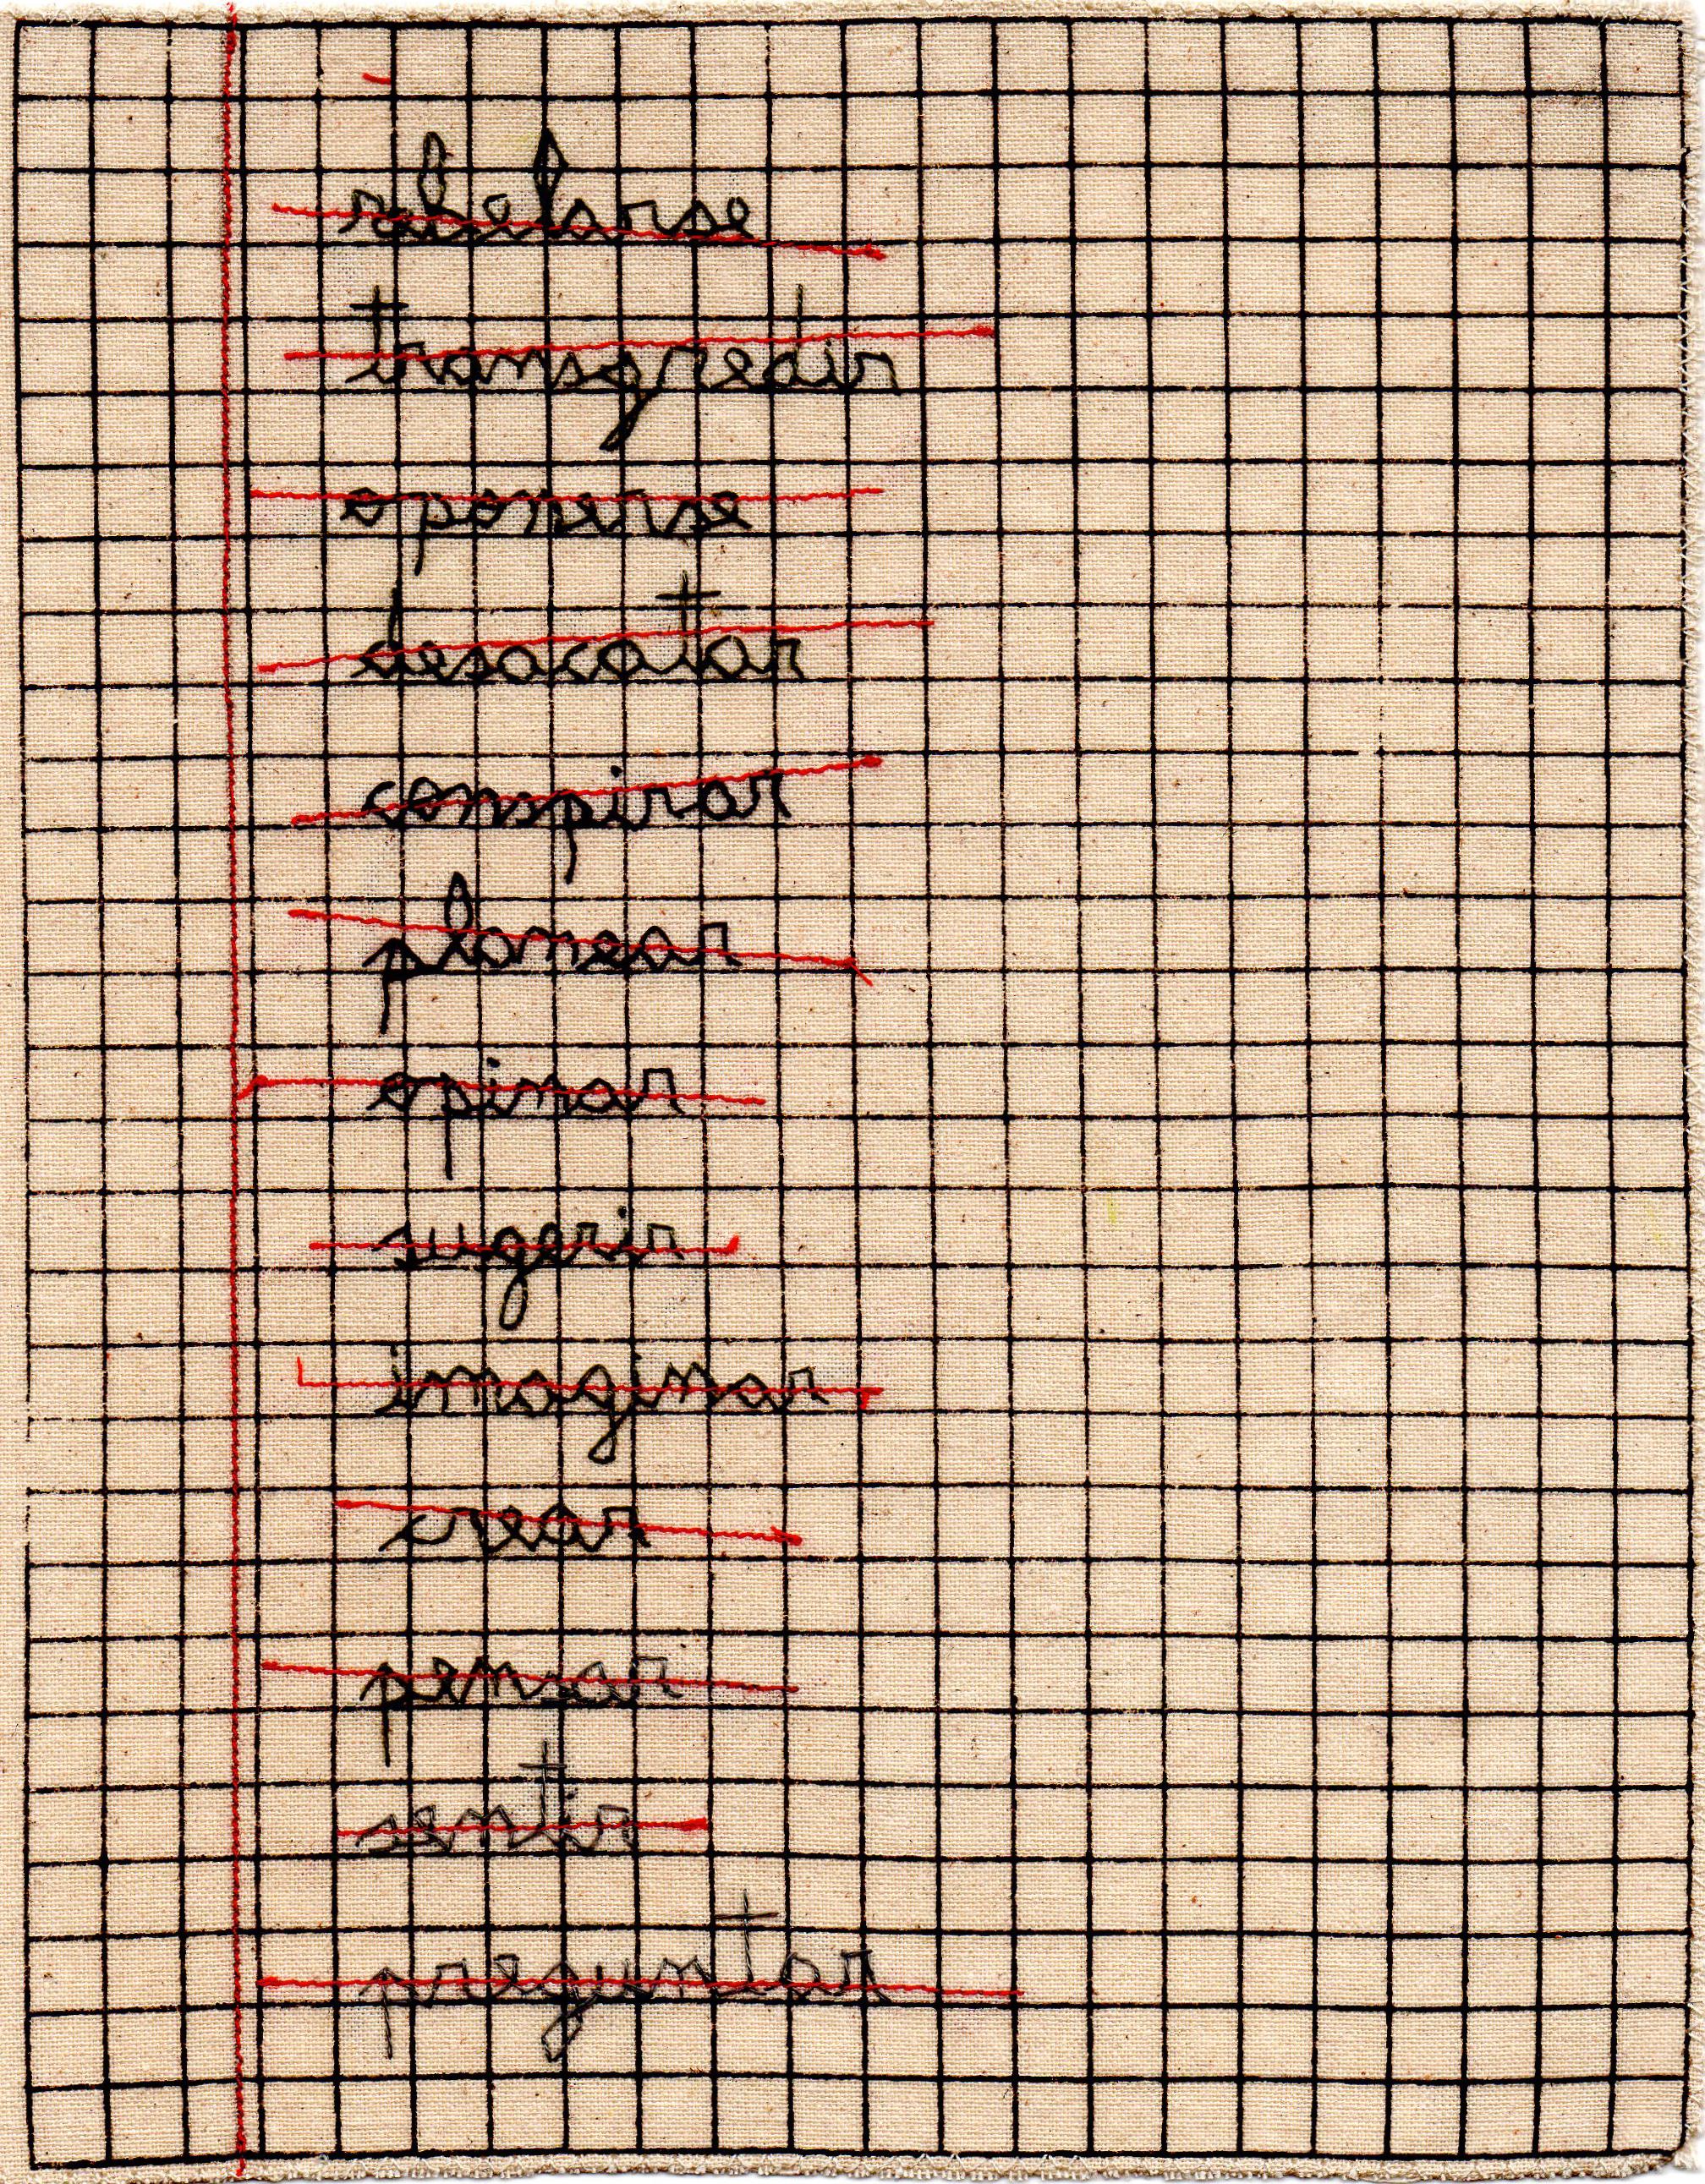 rebelarse
transgredir
oponerse
desacatar
conspirar
planear
opinar
sugerir
imaginar
crear
pensar
sentir
preguntar